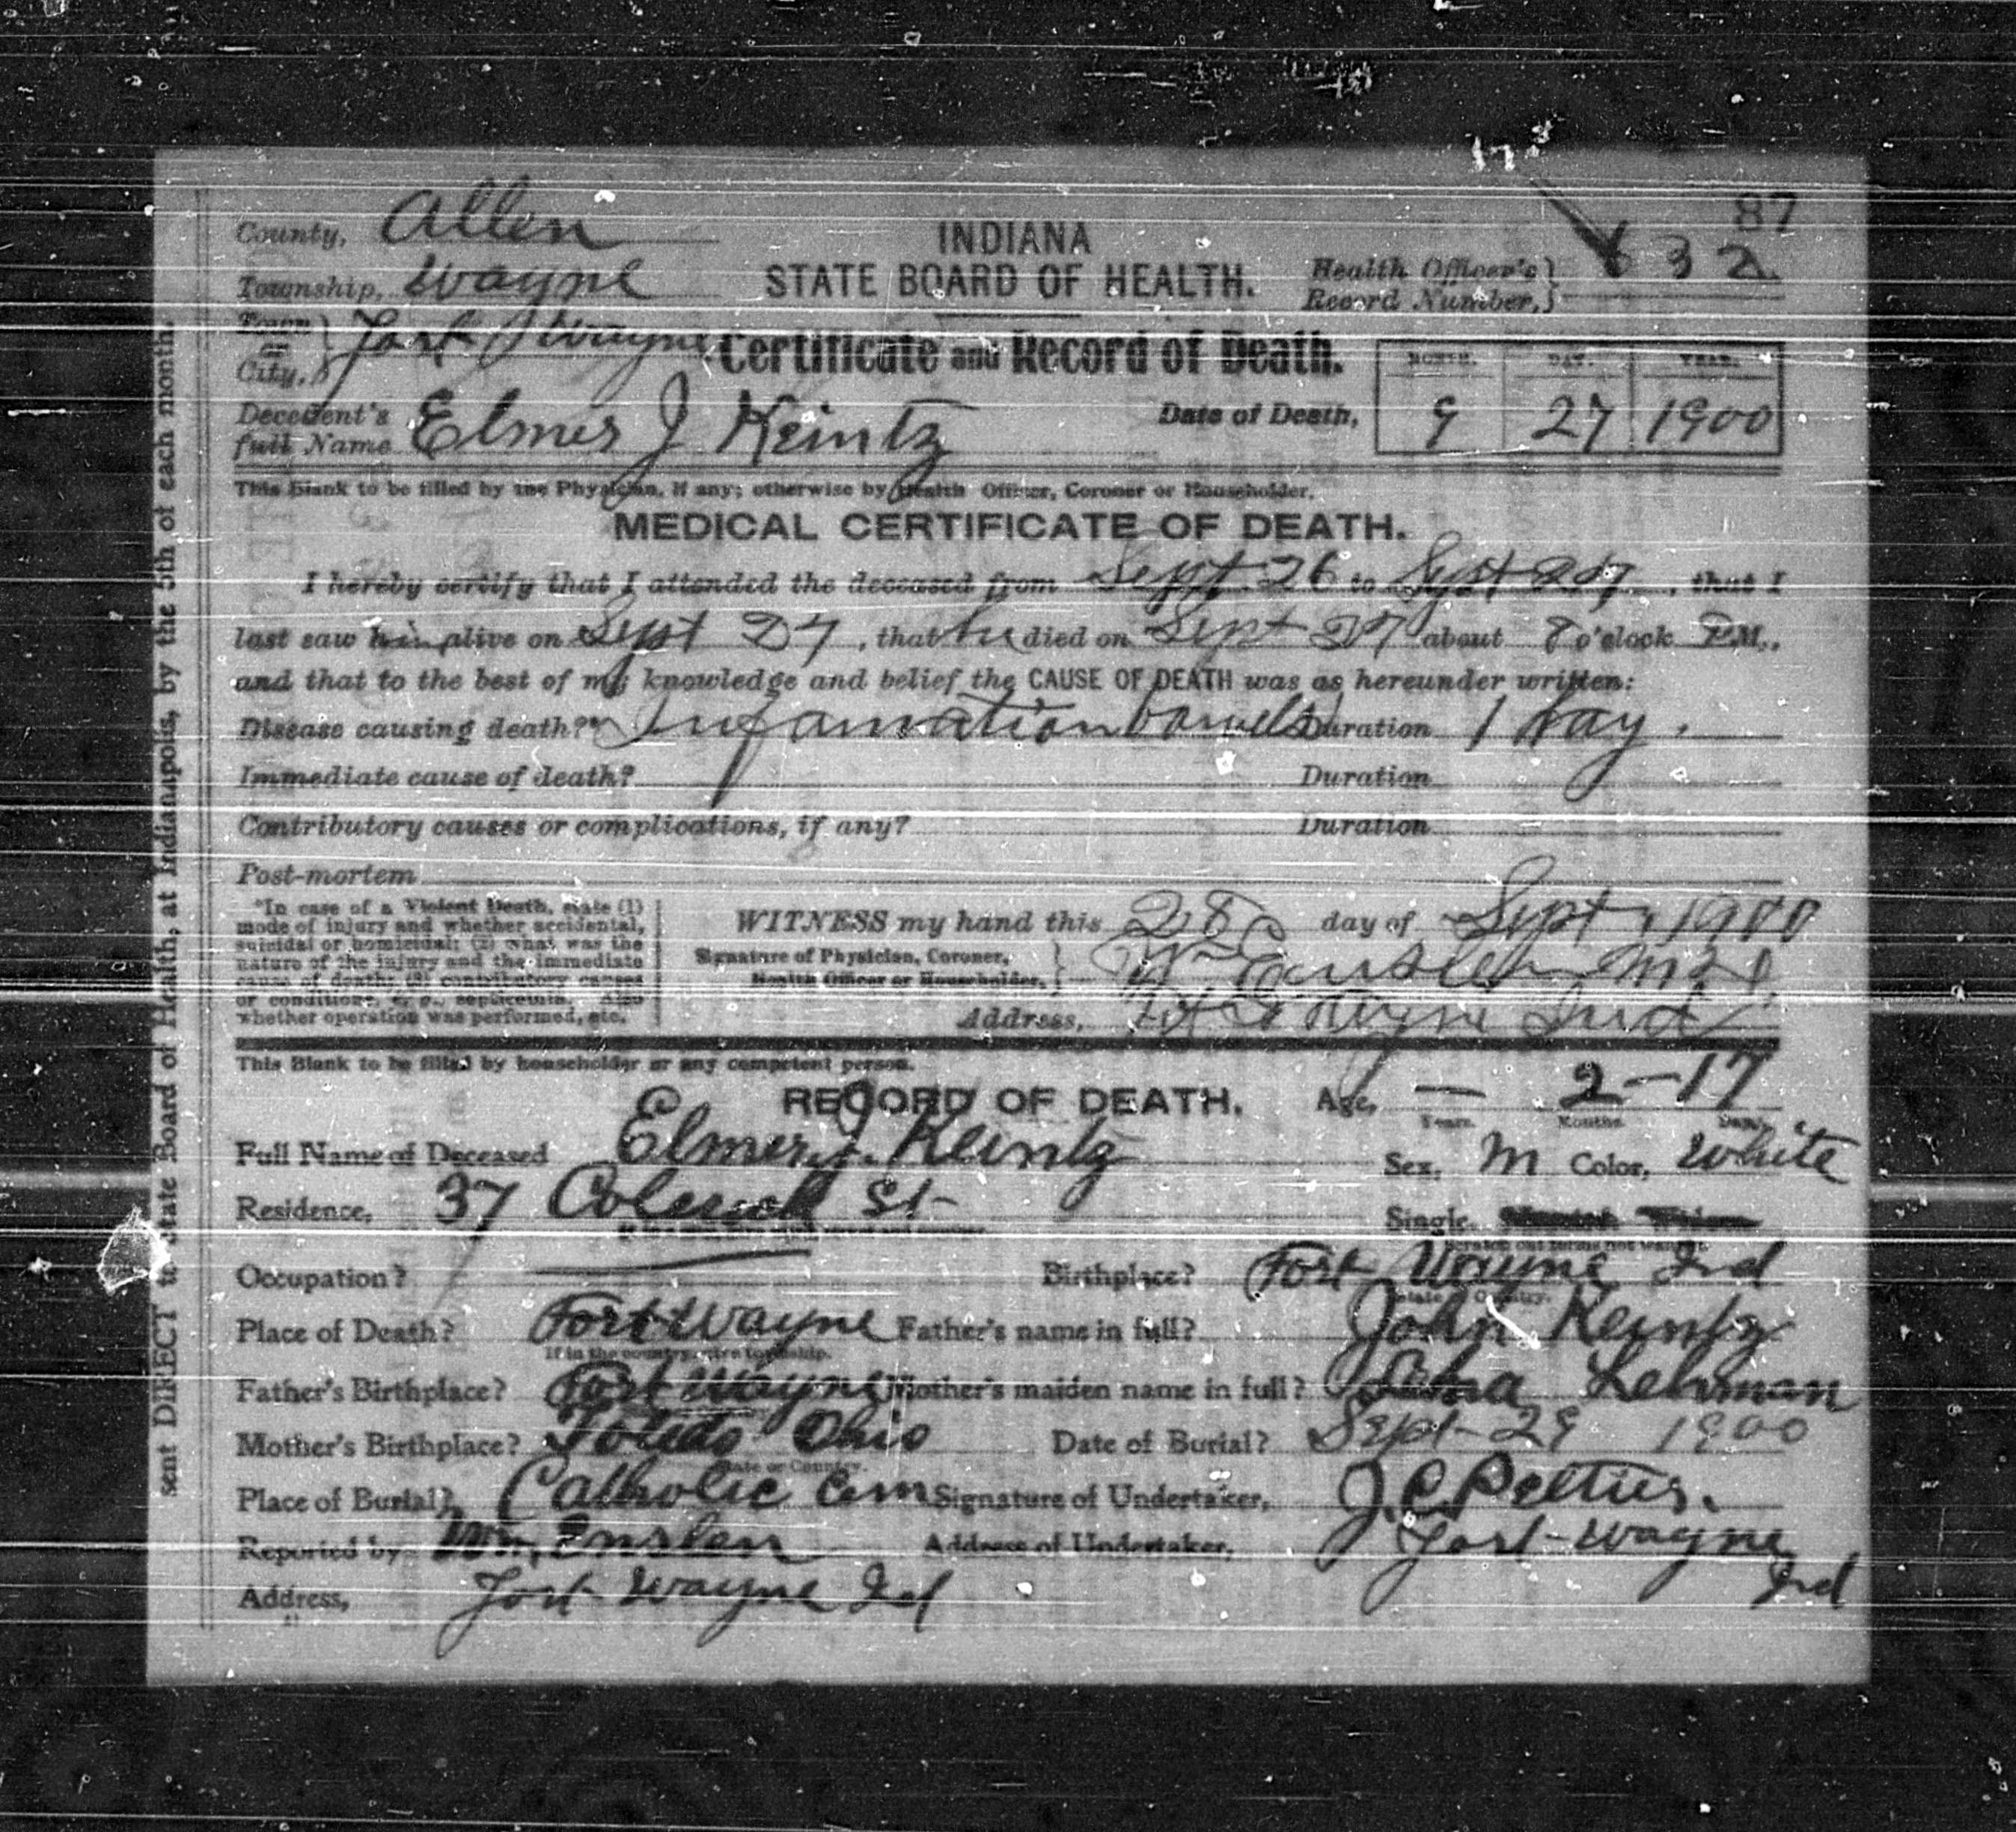 87
County, Allen
INDIANA
Township, Wayne
STATE BOARD OF HEALTH.
Health Officer's Record Number, 632
Town or City, Fort Wayne
Certificate and Record of Death.
MONTH. DAY. YEAR.
Decedent's full Name Elmer J Keintz
Date of Death, 9 27 1900
This Blank to be filled by the Physician, if any; otherwise by Health Officer, Coroner or Householder.
MEDICAL CERTIFICATE OF DEATH.
I hereby certify that I attended the deceased from Sept 26 to Sept 27, that I
last saw him alive on Sept 27, that he died on Sept 27 about 8 o'clock P.M.,
and that to the best of my knowledge and belief the CAUSE OF DEATH was as hereunder written:
Disease causing death?* Infamation bowels Duration 1 day.
Immediate cause of death? Duration
Contributory causes or complications, if any? Duration
Post-mortem
*In case of a Violent Death, state (1)
mode of injury and whether accidental,
suicidal or homicidal; (2) what was the
nature of the injury and the immediate
cause of death; (3) contributory causes
or conditions, e. g., septicemia. Also
whether operation was performed, etc.
WITNESS my hand this 28 day of Sept, 1900
Signature of Physician, Coroner, Health Officer or Householder, Wm Enslen M D
Address, Ft Wayne Ind
This Blank to be filled by householder or any competent person.
RECORD OF DEATH. Age, — 2-17
Years. Months. Days.
Full Name of Deceased Elmer J. Keintz Sex, M Color, White
Residence, 37 Colerick St Single.
Scratch out terms not wanted.
Occupation? Birthplace? Fort Wayne Ind
State or Country.
Place of Death? Fort Wayne Father's name in full? John Keintz
If in the country, give township.
Father's Birthplace? Fort Wayne Mother's maiden name in full? Lehman
Mother's Birthplace? Toledo Ohio Date of Burial? Sept-29 1900
State or Country.
Place of Burial? Catholic Cem Signature of Undertaker, J.C. Peltier.
Reported by Wm, Enslen Address of Undertaker, Fort-Wayne
Ind
Address, Fort Wayne Ind
sent DIRECT to State Board of Health, at Indianapolis, by the 5th of each month.